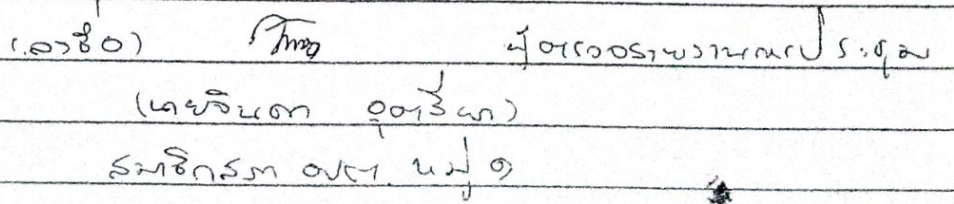 (ลงชื่อ) ผู้ตรวจรายงานการประชุม
(นายจินดา
สมาชิกสภา อบต. หมู่ ๑